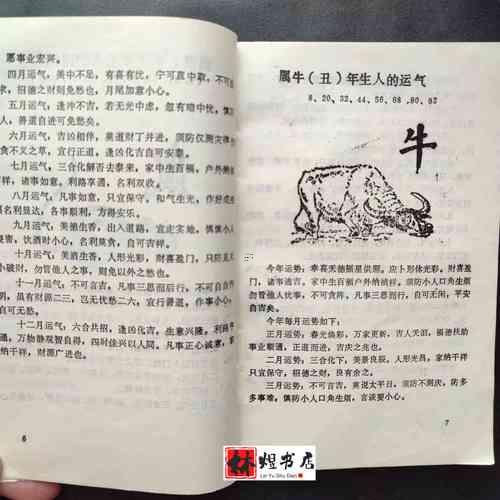 愿事业宏兴。
四月运气,美中不足,有喜有忧,宁可取中取,不可
求,招德之财则免愁也,月尾加意小心。
五月运气,逢冲不吉,若无光中虑,忽有暗中忧,慎防
人,善道自进可免愁矣。
六月运气,吉凶相伴,莫道财丁并进,须防仅测灾
食不义之草,宜行正道,逢凶化吉自可安泰。
七月运气,三合化解否去泰来,家中生百福,户外纳
祥,诸事如意,利路享通,名利双收。
八月运气,凡事如意,只宜保守,和气生光,作好
名利显达,各事顺利,方得安乐。
九月运气,美酒生香,出入道路,宜走实地,慎慎小人
害,饮酒时小心,名利莫贪,自可吉祥。
十月运气,美酒生香,人形光彩,财喜盈门,只防
小破财,勿管他人之事,则免以外之愁也。
十一月运气,不可言吉,凡事三思而行自可吉
,虽有财源二三,岂无忧愁二六,宜行善道,作事小心
。
十二月运气,六合共招,逢凶化吉,生意兴隆,利路
通,万物静观智自得,四时佳兴以人同,凡事正心诚意,
纳千祥,财源广进也。
6
属牛(丑)年生人的运气
8、20、32、44、56、68、80、92
牛
今年运势:幸喜天德福星供照。应卜形体光彩,财喜盈
门,诸事遂吉,家中生百福户外纳祥,须防小人口角生烦
勿管他人忧事,不可贪阵,凡事三思而行,自可无闲,平安
自吉矣。
今年每月运势如下:
正月运势:春光焕彩,万家更新,吉人天洄,福德扶助
事业顺通,正道而进,吉庆之兆也。
二月运势:三合化下,美景良辰,人形光员,家纳千祥
只宜保守,招德之财,良有余之。
三月运势:不可言吉,莫说太平日,须防不测庆,防多
多事难,慎防小人口角生烦,言谈要小心。
7
林煜书店
Lin Yu Shu Dian